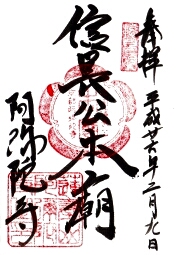 奉拝 平成廿六年二月九日
信長公本廟
阿弥陀寺